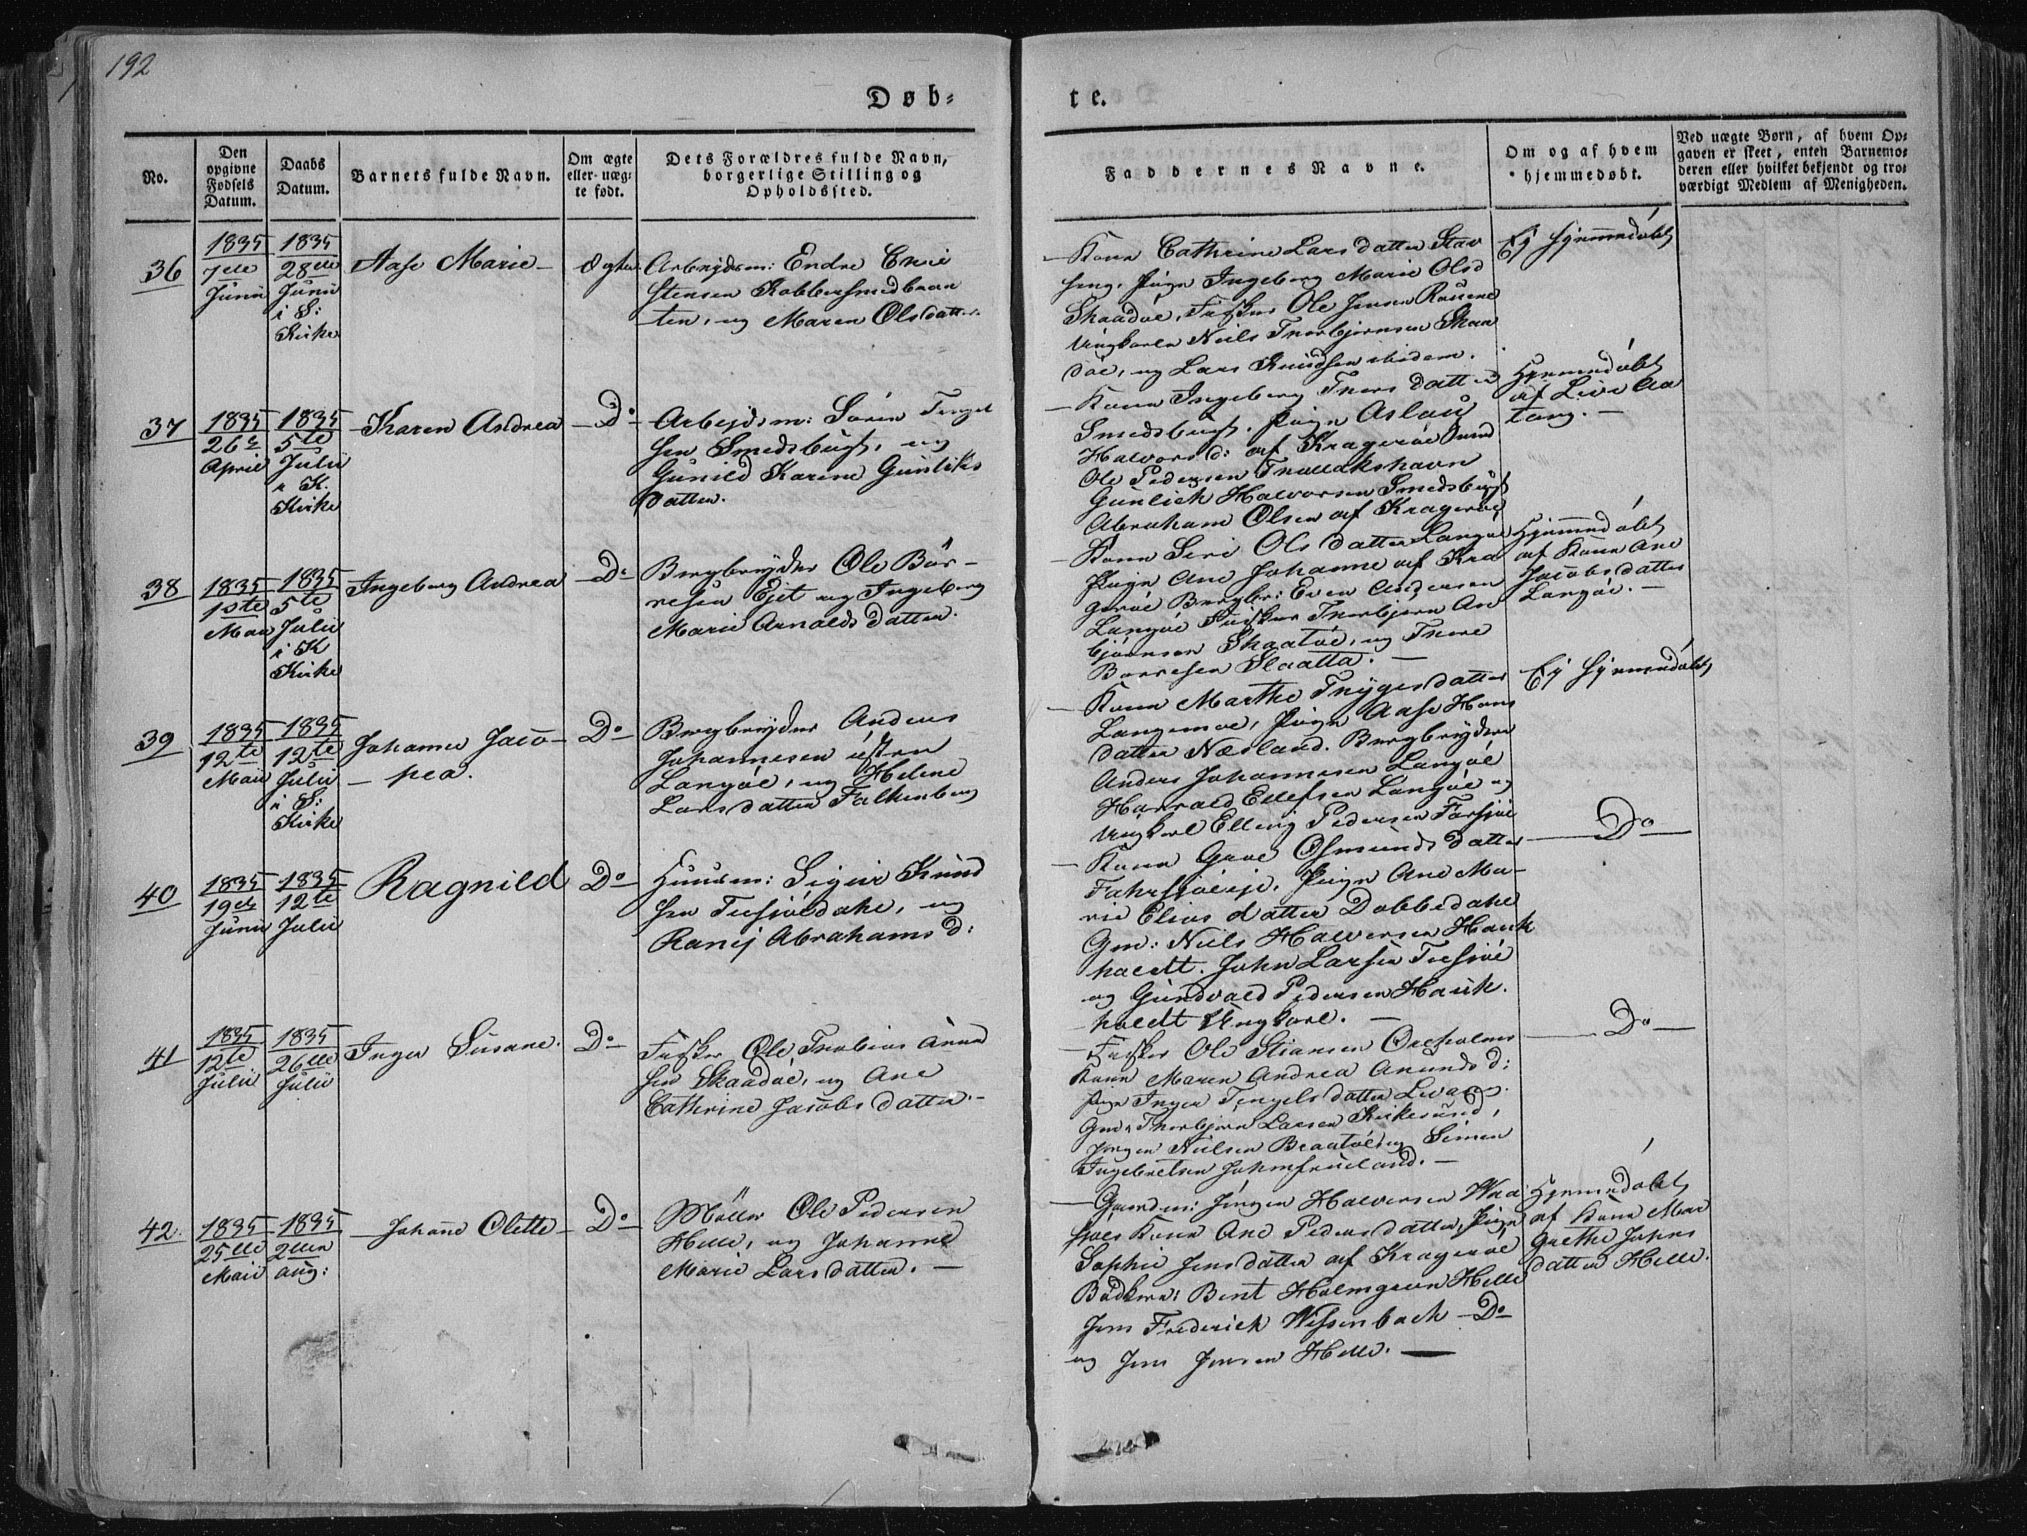 192
Døb-
te.
No.
Den opgivne Fødsels Datum.
Daabs Datum.
Barnets fulde Navn.
Om ægte eller uæg-te født.
Dets Forældres fulde Navn, borgerlige Stilling og Opholdssted.
Faddernes Navne.
Om og af hvem hjemmedøbt.
Ved uægte Børn, af hvem Op-gaven er skeet, enten Barnemo-deren eller hvilket bekjendt og tro-værdigt Medlem af Menigheden.
36
1835
7de
Junii
1835
28de
Junii
i S:
Kirke
Aase Marie
Ægte
Arbeydsm: Endre
Stensen Kobbersmed
og Maren Olsdatter.
Kone Cathrine Larsdatter
Pige Ingeborg Marie Olsd
Skaadøe, Fisker Ole Jensen
Ungkarle Niels Thorbjørnsen Skaa
døe, og Lars Knudsen ibidem.
Ej hjemmedøbt
37
1835
26
April
1835
5te
Julii
i K.
Kirke
Karen Andrea
Do
Arbejdsm: Søren
Smedsbugt, og
Gunild Karine Gunliks
datter.
Kone Ingeborg Thorsdatter
Smedsbugt. Pige Aslaug
Halvorsd: af Kragerøe
Ole Pedersen
Gunlich Halvorsen Smedsbugt
Abraham Olsen af Kragerøe
Hjemmedøbt
af
38
1835
1ste
Maii
1835
5te
Julii
i K
Kirke
Ingeborg Andrea
Do
Bergbryder Ole Bør-
resen Ejet og Ingeborg
Marie Arnoldsdatter.
Kone Siri Olsdatter Langøe
Pige Ane Johanne af Kra
gerøe Bergbr: Even Andersen
Langøe Fisker Thorbjørn An
bjørnsen Skaatøe, og Thore
Børresen Slaatta.
Hjemmedøbt
af Kone Ane
Jacobsdatter
Langøe.
39
1835
12te
Maii
1835
12te
Julii
i S:
Kirke
Johanne Jaco-
pea.
Do
Bergbryder Anders
Johannesen østre
Langøe, og Helene
Larsdatter Falkenberg
Kone Marthe Trygesdatter
Langemoe, Pige Aase Hans
datter Næsland. Bergbrydere
Anders Johannesen Langøe
Harrald Ellefsen Langøe og
Ungkarl Elling Pedersen Farsjøe
Ej hjemmedøbt
40
1835
19de
Junii
1835
12te
Julii
Ragnild
Do
Huusm: Sigur Knud
sen og
Ranij Abrahamsd:
Kone Groe Osmundsdatter
Pige Ane Ma-
rie Eliasdatter Dobbedahl
Gm: Niels Halvorsen Hauk
holdt. John Larsen
og Gundvald Pedersen Hauk
holdt Ungkarl.
Do
41
1835
12te
Julii
1835
26de
Julii
Inger Susane.
Do
Fisker Ole Thobias
sen Skaadøe, og Ane
Cathrine Jacobsdatter.
Fisker Ole Stiansen
Kone Maren Andrea Anundsd:
Pige Inger Tengelsdatter
Gm: Thorbjørn Larsen Kirkesund,
Jørgen Nielsen Braatøe og Simen
Ingebretsen
Do
42.
1835
25de
Maii
1835
2den
Aug:
Johane Olette
Do
Møller Ole Pedersen
Helle, og Johanne
Marie Larsdatter.
Gaardm: Jørgen Halvorsen
Kone Ane Pedersdatter, Pige
Sophie Jensdatter af Kragerøe
Bødker: Bent Holmgren Helle
Jens Frederich Wissenbach Do
og Jens Jensen Helle.
Hjemmedøbt
af Kone Mar
grethe Johns
datter Helle.